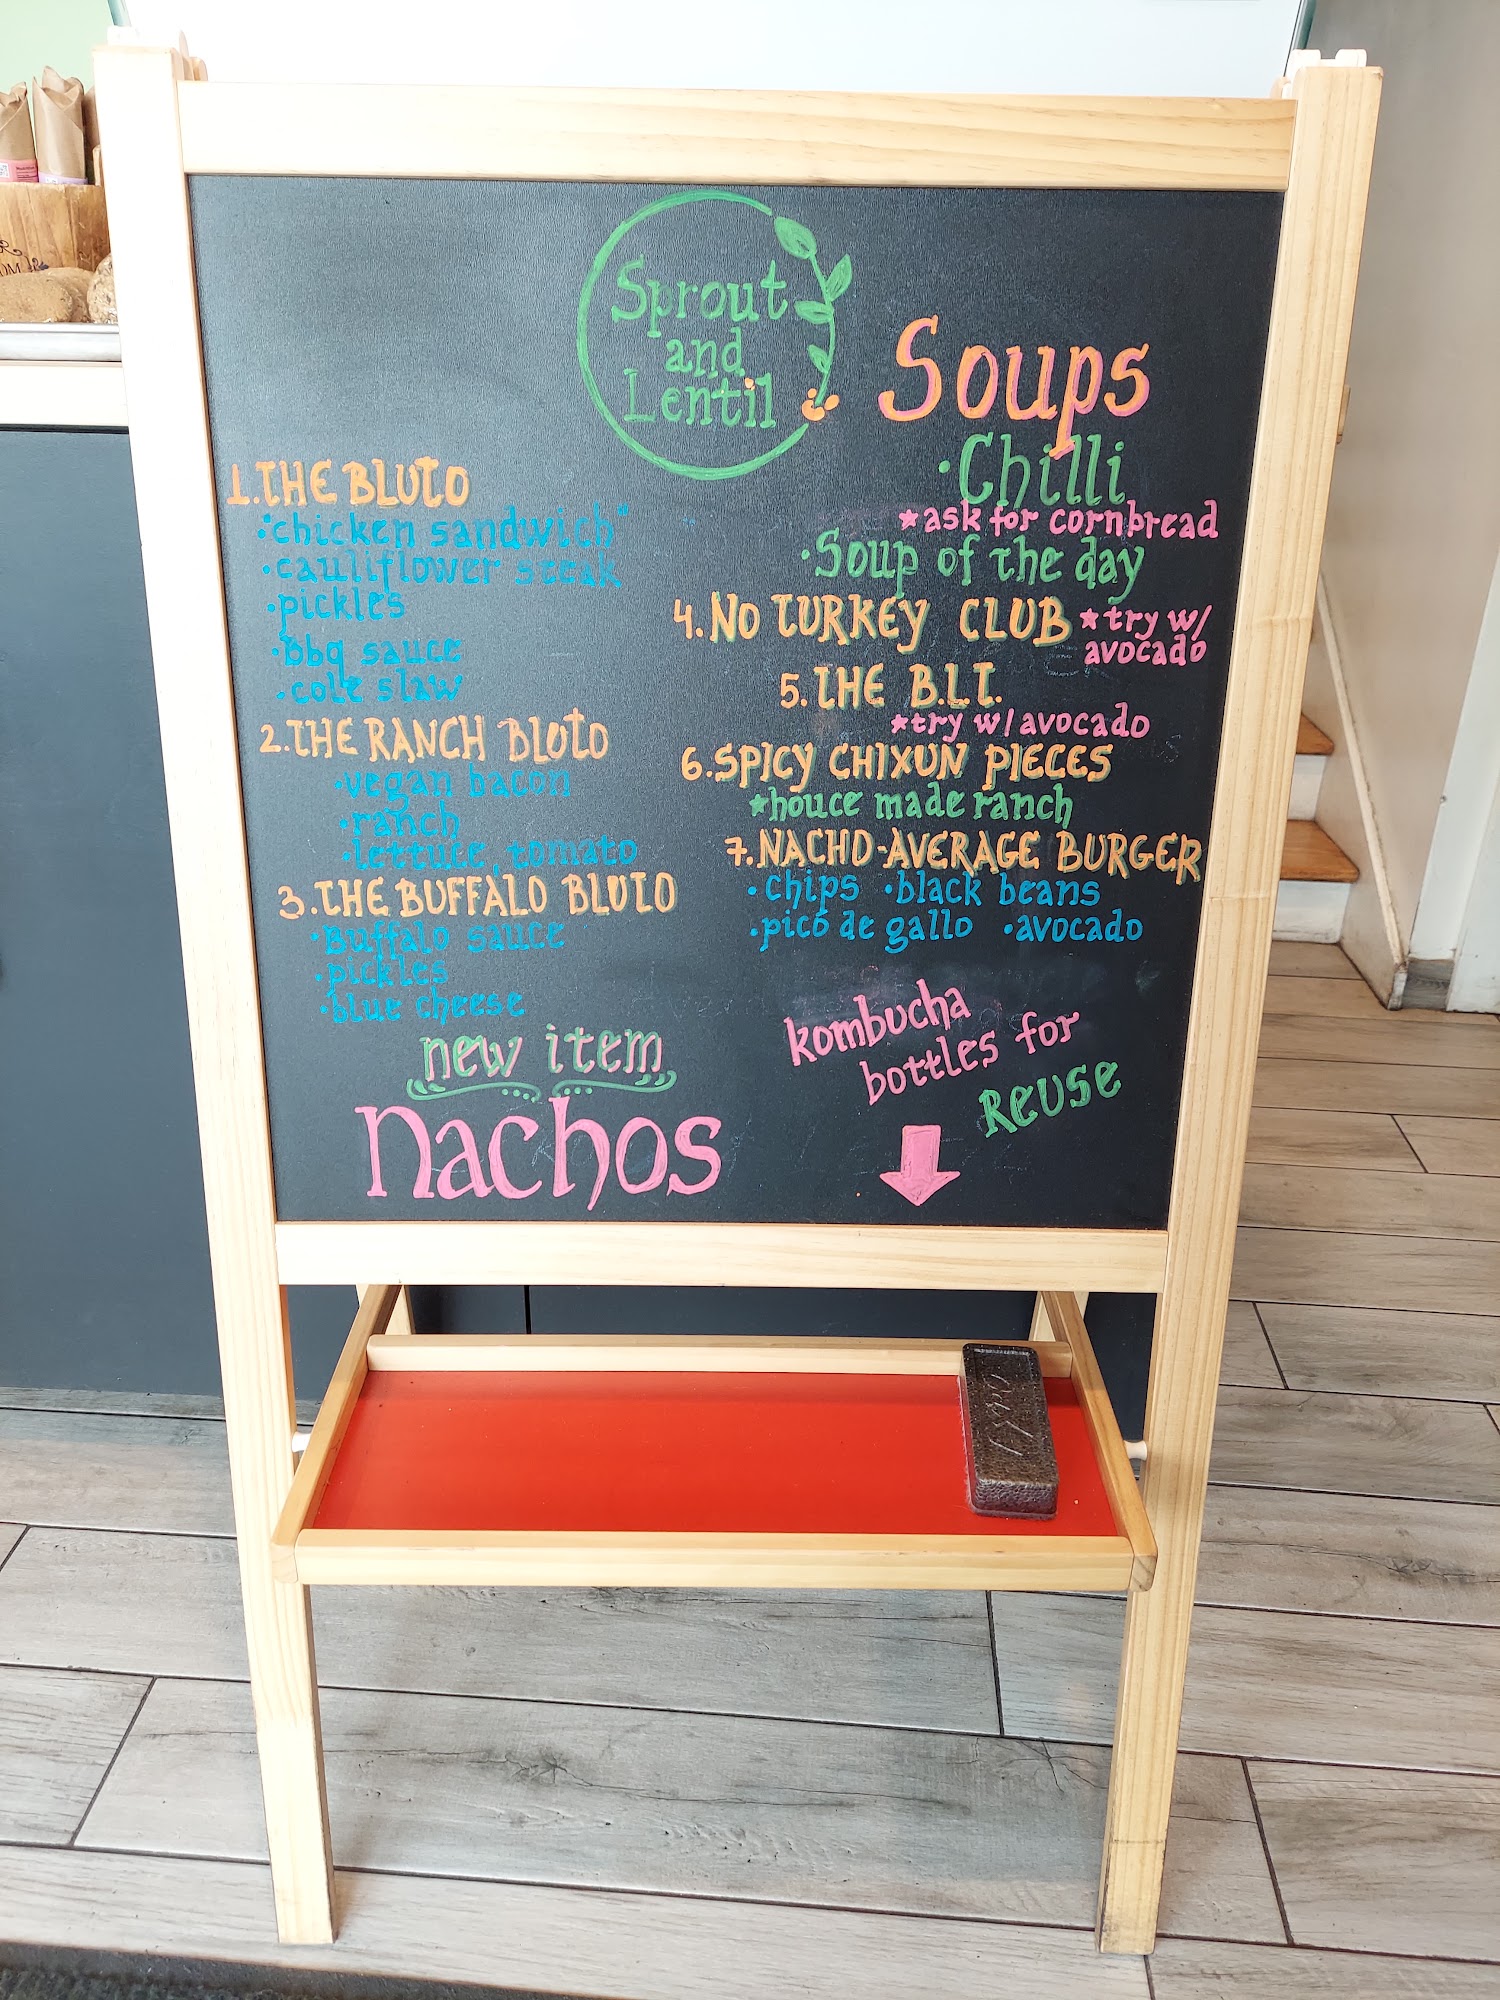 Sprout
and
Lentil
1. THE BLUTO
• "chicken sandwich"
• cauliflower steak
• pickles
• Bbq sauce
• cole slaw
2. THE RANCH BLUTO
• vegan bacon
• ranch
• lettuce, tomato
3. THE BUFFALO BLUTO
• Buffalo sauce
• pickles
• blue cheese
new item
Nachos
Soups
• Chilli
*ask for cornbread
• Soup of the day
4. NO TURKEY CLUB *try w/
avocado
5. THE B.L.T.
*try w/ avocado
6. SPICY CHIXUN PIECES
*houce made ranch
7. NACHO-AVERAGE BURGER
• chips • black beans
• pico de gallo • avocado
kombucha
bottles for
REUSE